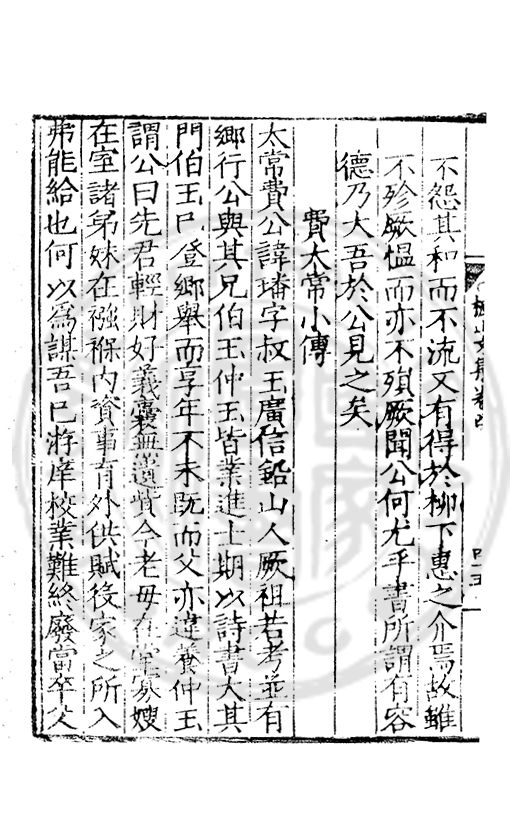 不怨其和而不流又有得於柳下惠之介焉故雖
不殄厥愠而亦不殞厥聞公何尤乎書所謂有容
德乃大吾於公見之矣
費太常小傳
太常費公諱璠字叔玉廣信鉛山人厥祖若考並有
鄉行公與其兄伯玉仲玉皆業進士期以詩書大其
門伯玉已登鄉舉而享年不永既而父亦違養仲玉
謂公曰先君輕財好義囊無遺貲今老母在堂寡嫂
在室諸弟妹在襁褓內資事育外供賦役家之所入
弗能給也何以為謀吾已游庠校業難終廢當卒父